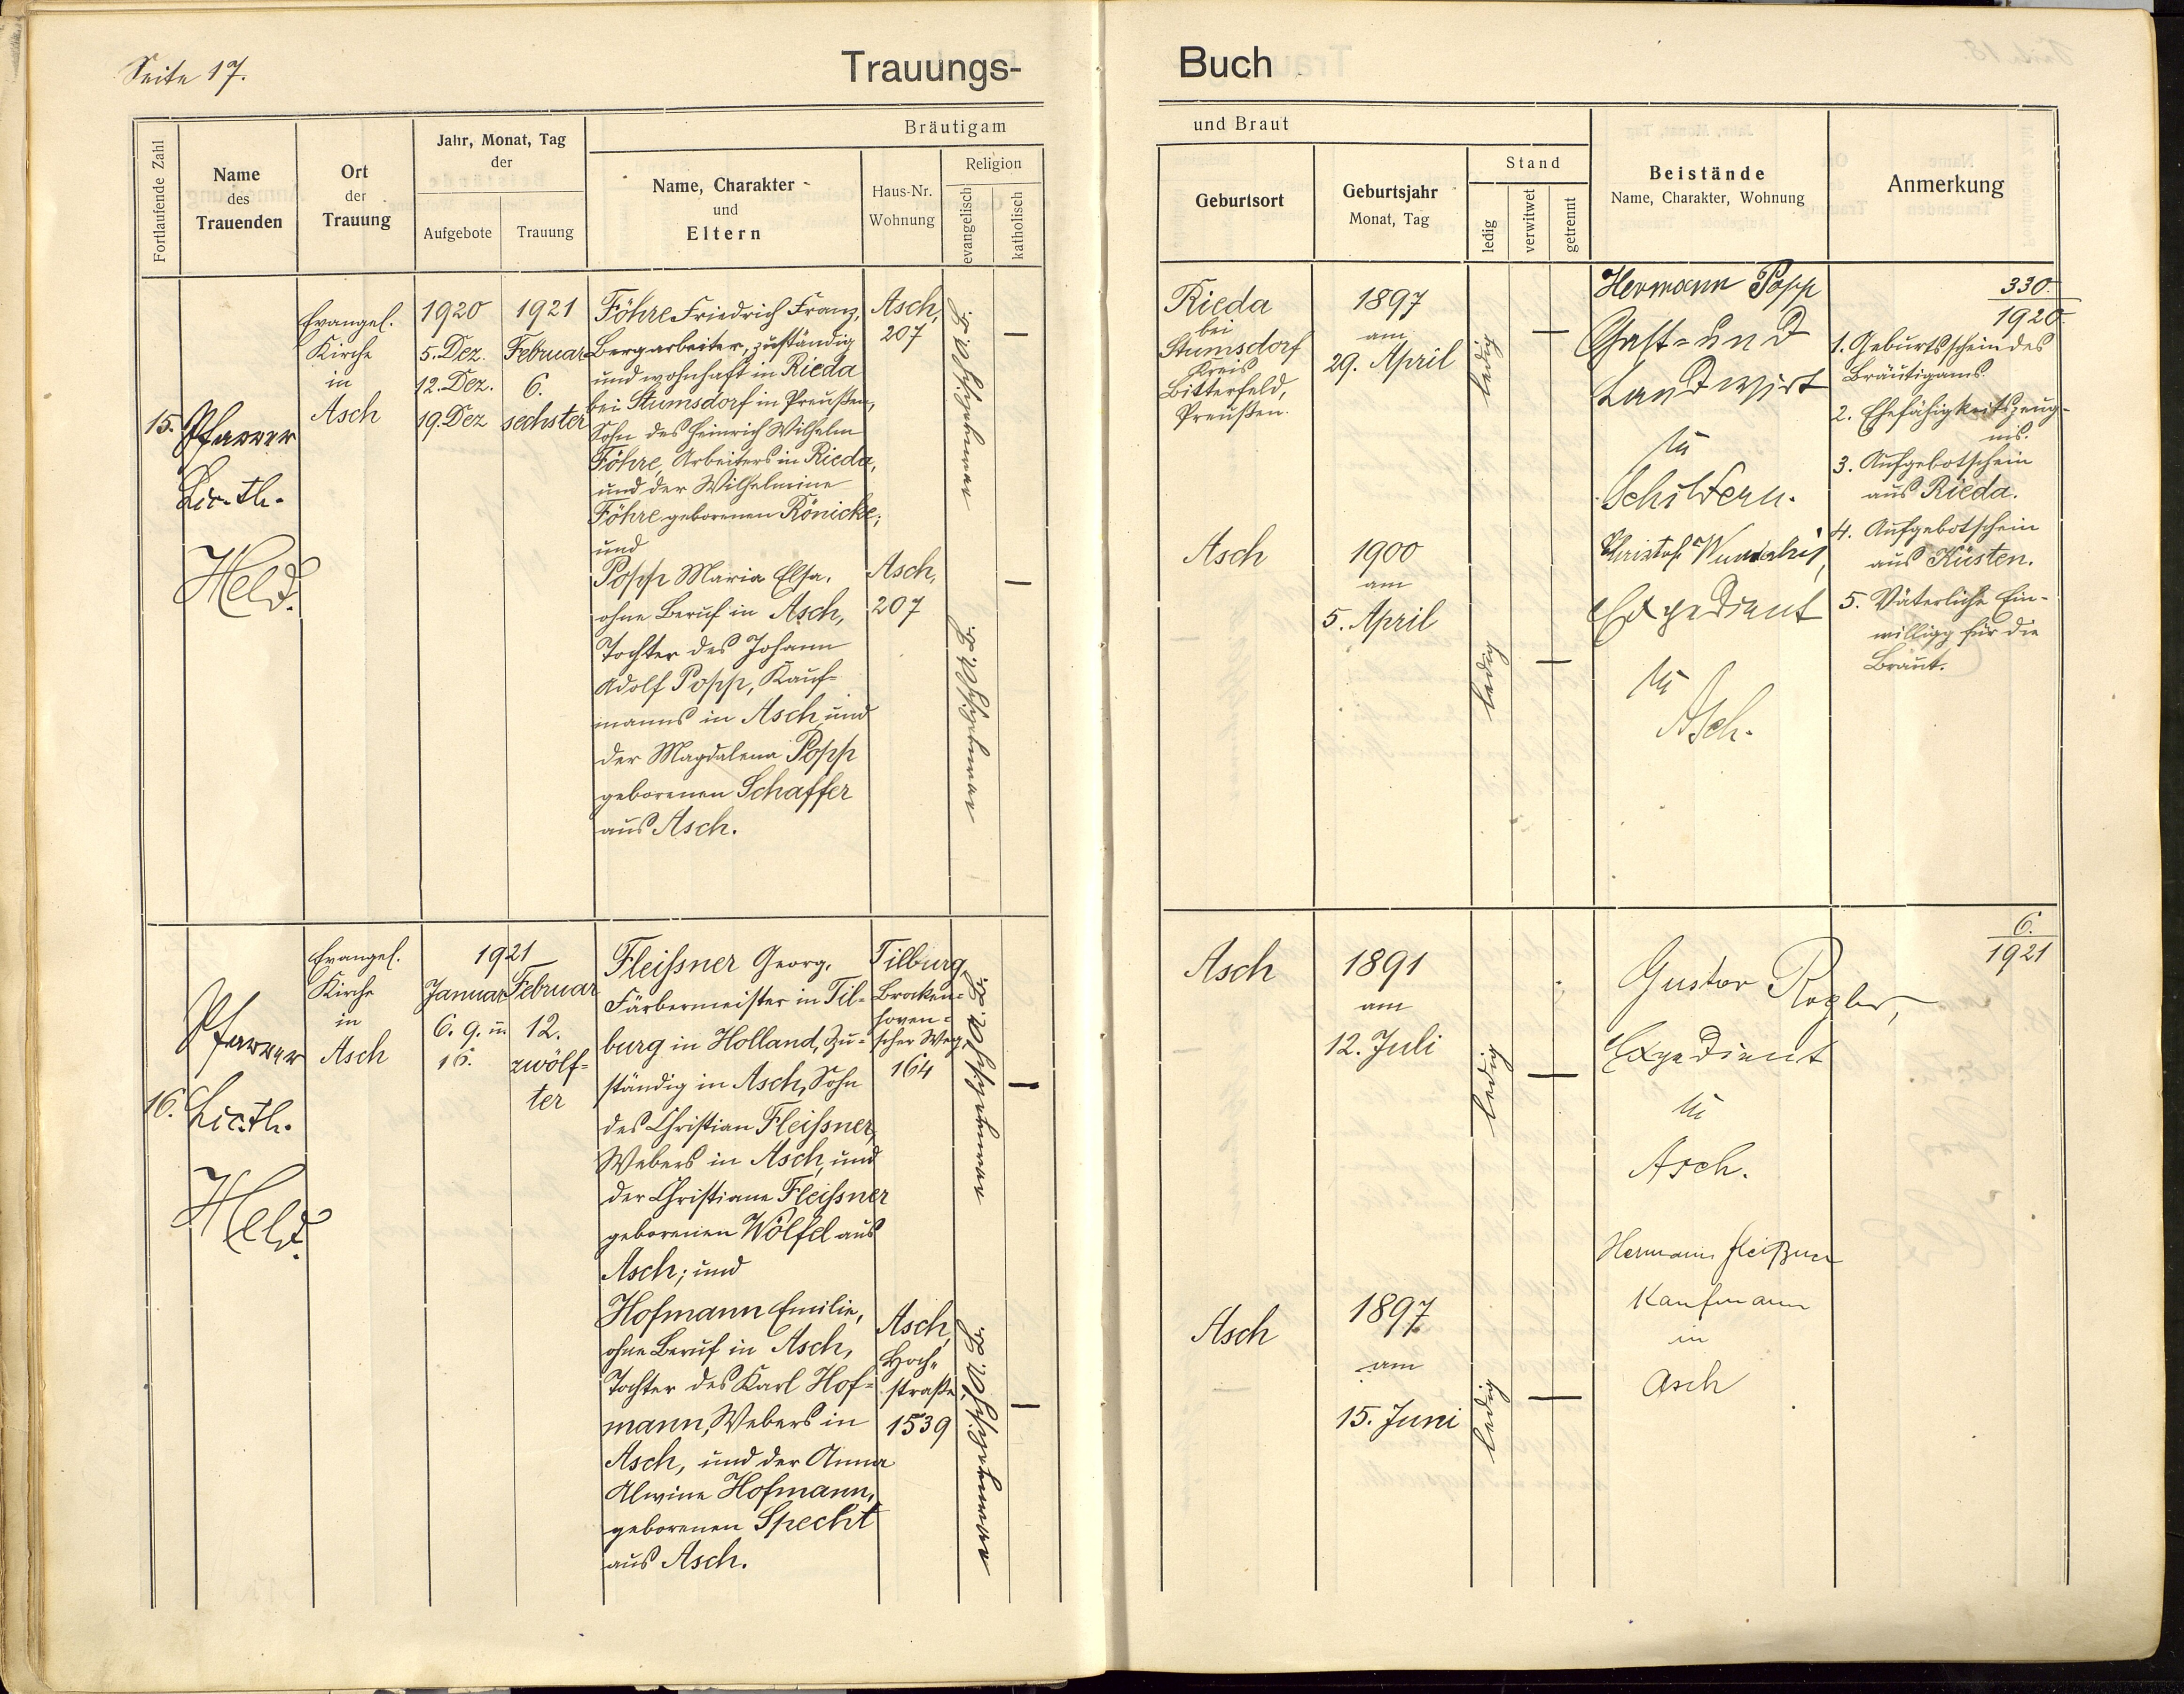 Seite 17.
Trauungs-
Fortlaufende Zahl
Name
des
Trauenden
Ort
der
Trauung
Jahr, Monat, Tag
der
Aufgebote
Trauung
Bräutigam
Name, Charakter
und
Eltern
Haus-Nr.
Wohnung
Religion
evangelisch
katholisch
15.
Pfarrer
Lic. th.
Held.
Evangel.
Kirche
in
Asch
1920
5. Dez.
12. Dez.
19. Dez
1921
Februar
6.
sechster
Föhre Friedrich Franz,
Bergarbeiter, zuständig
und wohnhaft in Rieda
bei Stumsdorf in Preußen,
Sohn des Heinrich Wilhelm
Föhre, Arbeiters in Rieda,
und der Wilhelmine
Föhre geborenen Könicke;
und
Popp Maria Elsa,
ohne Beruf in Asch,
Tochter des Johann
Adolf Popp, Kauf-
manns in Asch und
der Magdalena Popp
geborenen Schaffer
aus Asch.
Asch,
207
Asch,
207
16.
Pfarrer
Lic. th.
Held.
Evangel.
Kirche
in
Asch
1921
Januar
6. 9. u.
16.
Februar
12.
zwölf-
ter
Fleißner Georg,
Färbermeister in Til-
burg in Holland, zu-
ständig in Asch, Sohn
des Christian Fleißner,
Webers in Asch, und
der Christiane Fleißner
geborenen Wölfel aus
Asch; und
Hofmann Emilie,
ohne Beruf in Asch,
Tochter des Karl Hof-
mann, Webers in
Asch, und der Anna
Alwine Hofmann,
geborenen Specht
aus Asch.
Tilburg
Brocken-
hoven-
scher Weg
164
Asch,
Hoch-
straße,
1539
Buch
und Braut
Geburtsort
Geburtsjahr
Monat, Tag
Stand
ledig
verwitwet
getrennt
Beistände
Name, Charakter, Wohnung
Anmerkung
Rieda
bei
Stumsdorf
Kreis
Bitterfeld,
Preußen.
1897
am
29. April
ledig
Hermann Popp
Gast- und
Landwirt
in
Schildern.
330.
1920.
1. Geburtsschein des
Bräutigams.
2. Ehefähigkeitszeug-
nis.
3. Aufgebotschein
aus Rieda.
4. Aufgebotschein
aus Küsten.
5. Väterliche Ein-
willigg für die
Braut.
Asch
1900
am
5. April
ledig
Christof
Expedient
in
Asch.
Asch
1891
am
12. Juli
ledig
Gustav Rogler,
Expedient
in
Asch.
6.
1921
Asch
1897
am
15. Juni
ledig
Hermann Fleißner
Kaufmann
in
Asch